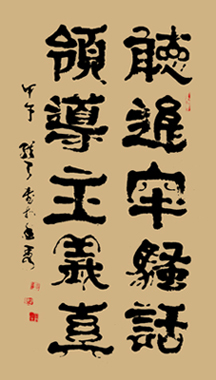 聽進牢騷話
領導主義真
甲午